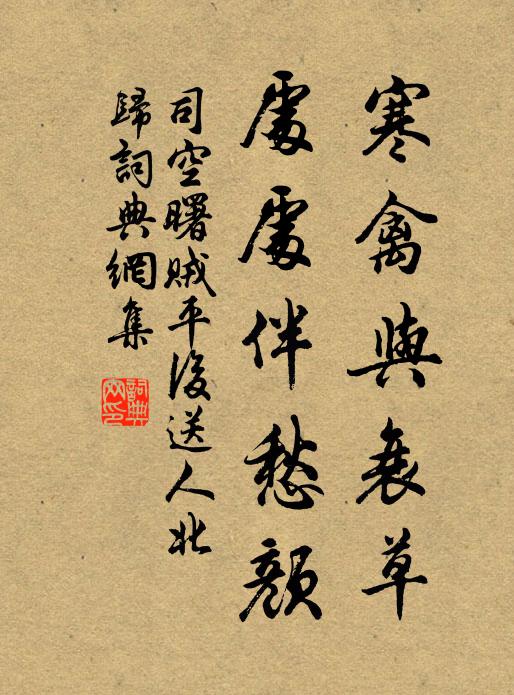 寒禽與衰草
處處伴愁顏
司空曙賊平後送人北
歸詞典網集
詞典網印